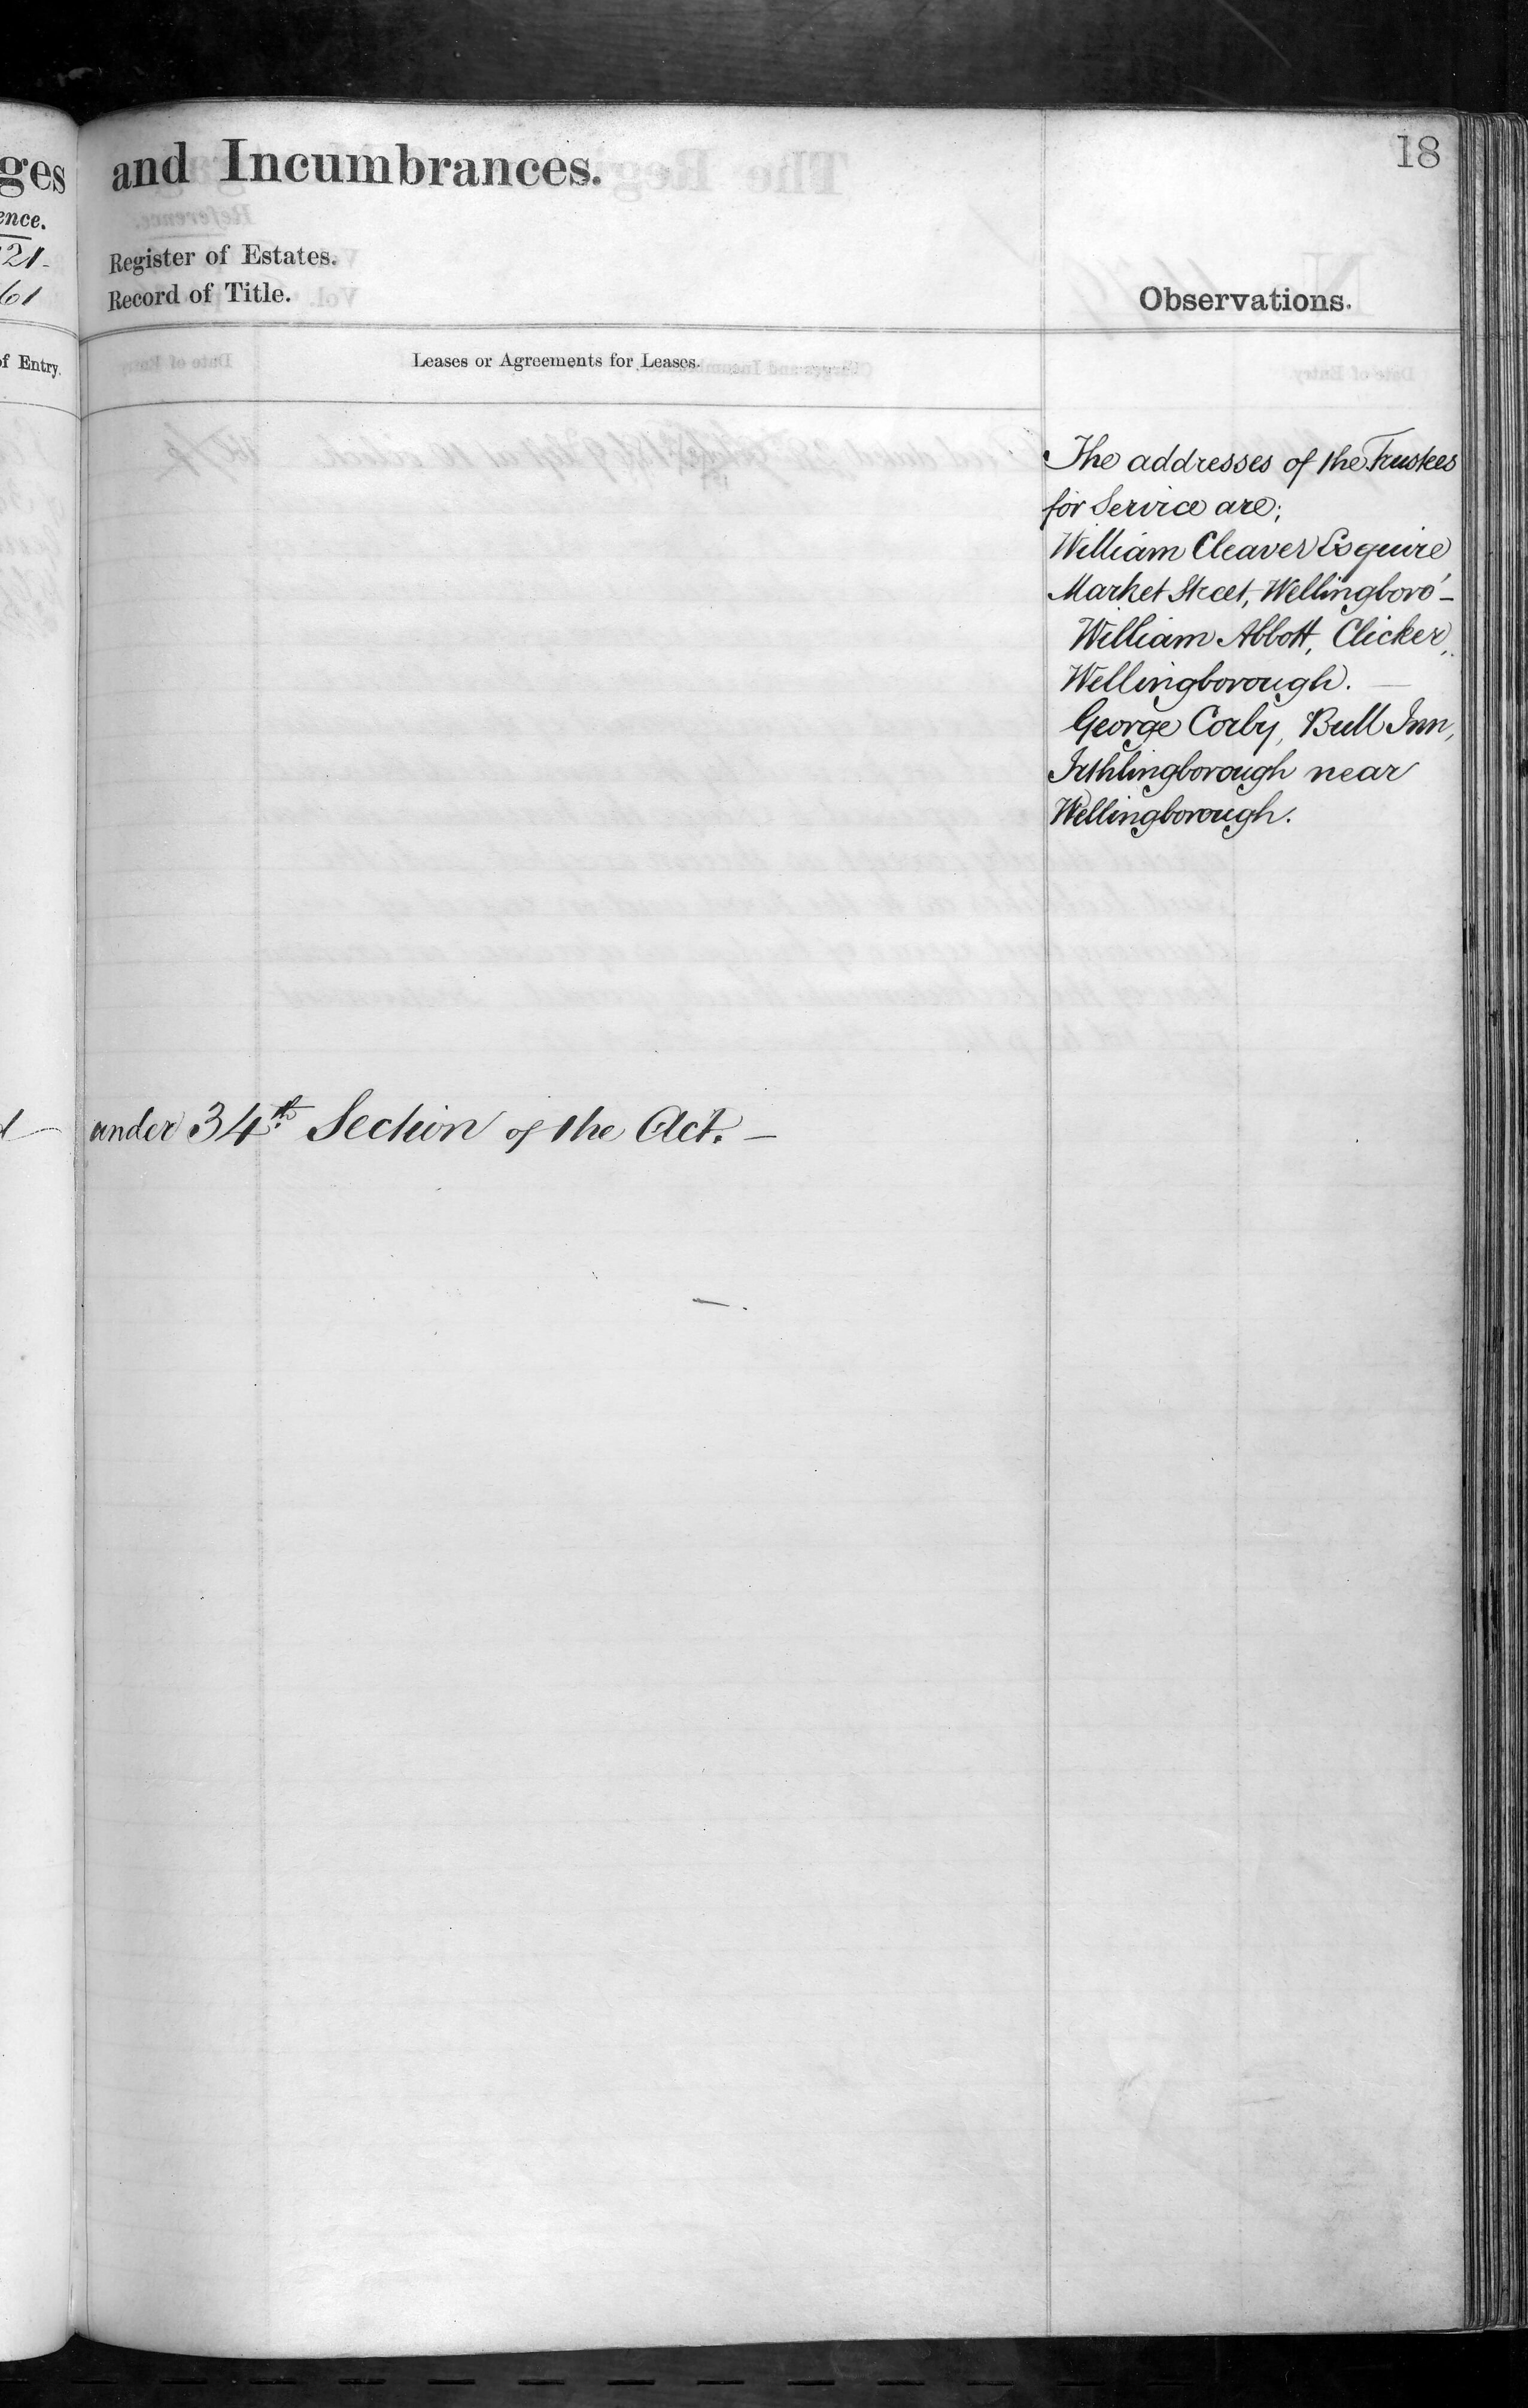 18
ges
and Incumbrances.
ence.
21-
61
Register of Estates.
Record of Title.
Observations.
of Entry.
Leases or Agreements for Leases.
The addresses of the Trustees
for Service are;
William Cleaver Esquire,
Market Street, Wellingboro' -
William Abbott, Clicker,
Wellingborough. —
George Corby, Bull Inn,
Irthlingborough near
Wellingborough.
under 34th Section of the Act. —